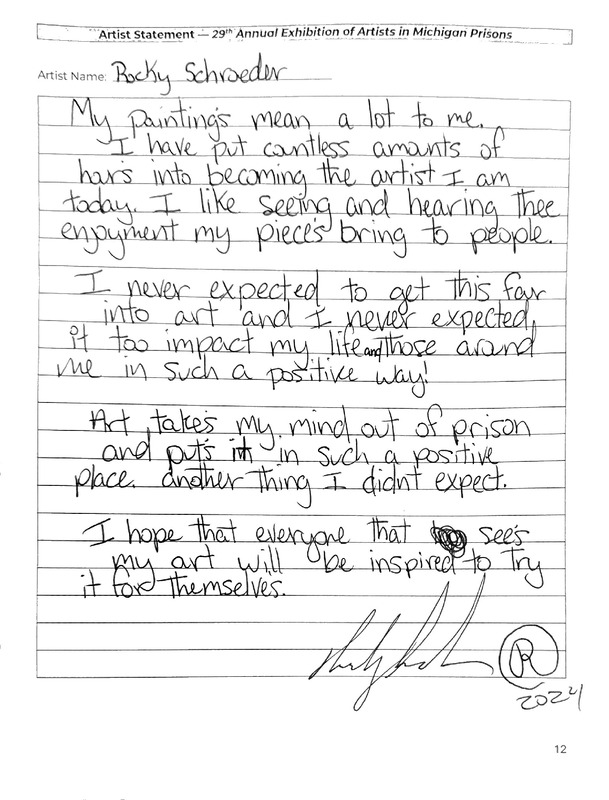 Artist Statement — 29th Annual Exhibition of Artists in Michigan Prisons
Artist Name: Rocky Schroeder
My painting's mean a lot to me.
I have put countless amounts of
hours into becoming the artist I am
today. I like seeing and hearing thee
enjoyment my piece's bring to people.
I never expected to get this far
into art and I never expected
it too impact my life and those around
me in such a positive way!
Art take's my mind out of prison
and put's it in such a positive
place. another thing I didnt expect.
I hope that everyone that see's
my art will be inspired to try
it for themselves.
R
2024
12